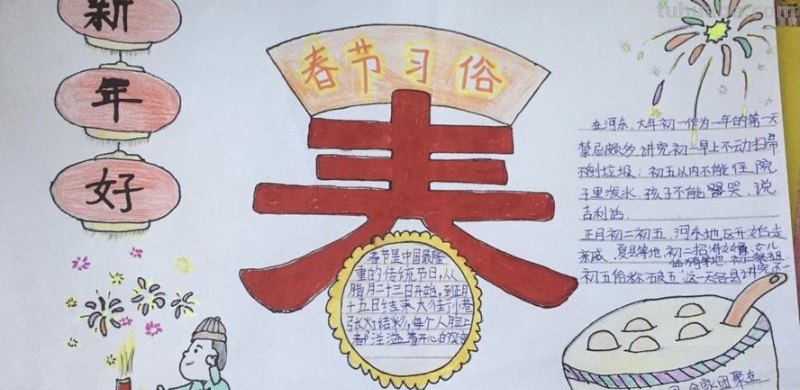 新
年
好
春节习俗
春
春节是中国最隆
重的传统节日,从
腊月二十三日开始,到正月
十五日结束大街小巷
张灯结彩,每个人脸上
都洋溢着开心的
在河东,大年初一作为一年的第一天
禁忌颇多,讲究初一早上不动扫帚
不倒垃圾;初五以内不能往院
子里泼水,孩子不能哭,说
吉利话。
正月初二初五,河东地区开始走
亲戚,夏县等地初二招待女婿,女儿
初五俗称破五,这一天各县讲究不
团聚在